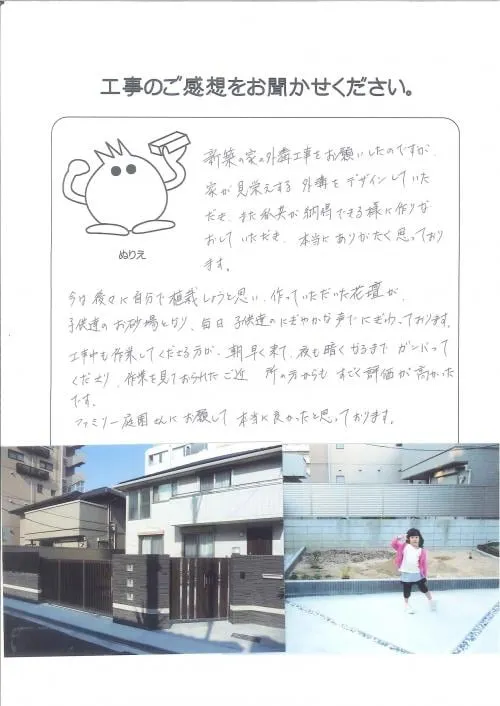 工事のご感想をお聞かせください。
新築の家の外構工事をお願いしたのですが、
家が見栄えする外構をデザインしていた
だき、また私共が納得できる様に作りな
おしていただき、本当にありがたく思っており
ます。
ぬりえ
今は後々に自分で植栽しようと思い、作っていただいた花壇が、
子供達のお砂場となり、毎日子供達のにぎやかな声でにぎわっております。
工事中も作業してくださる方が、朝早く来て、夜も暗くなるまでガンバって
くださり、作業を見ておられたご近所の方からもすごく評価が高かった
です。
ファミリー庭園さんにお願して本当に良かったと思っております。